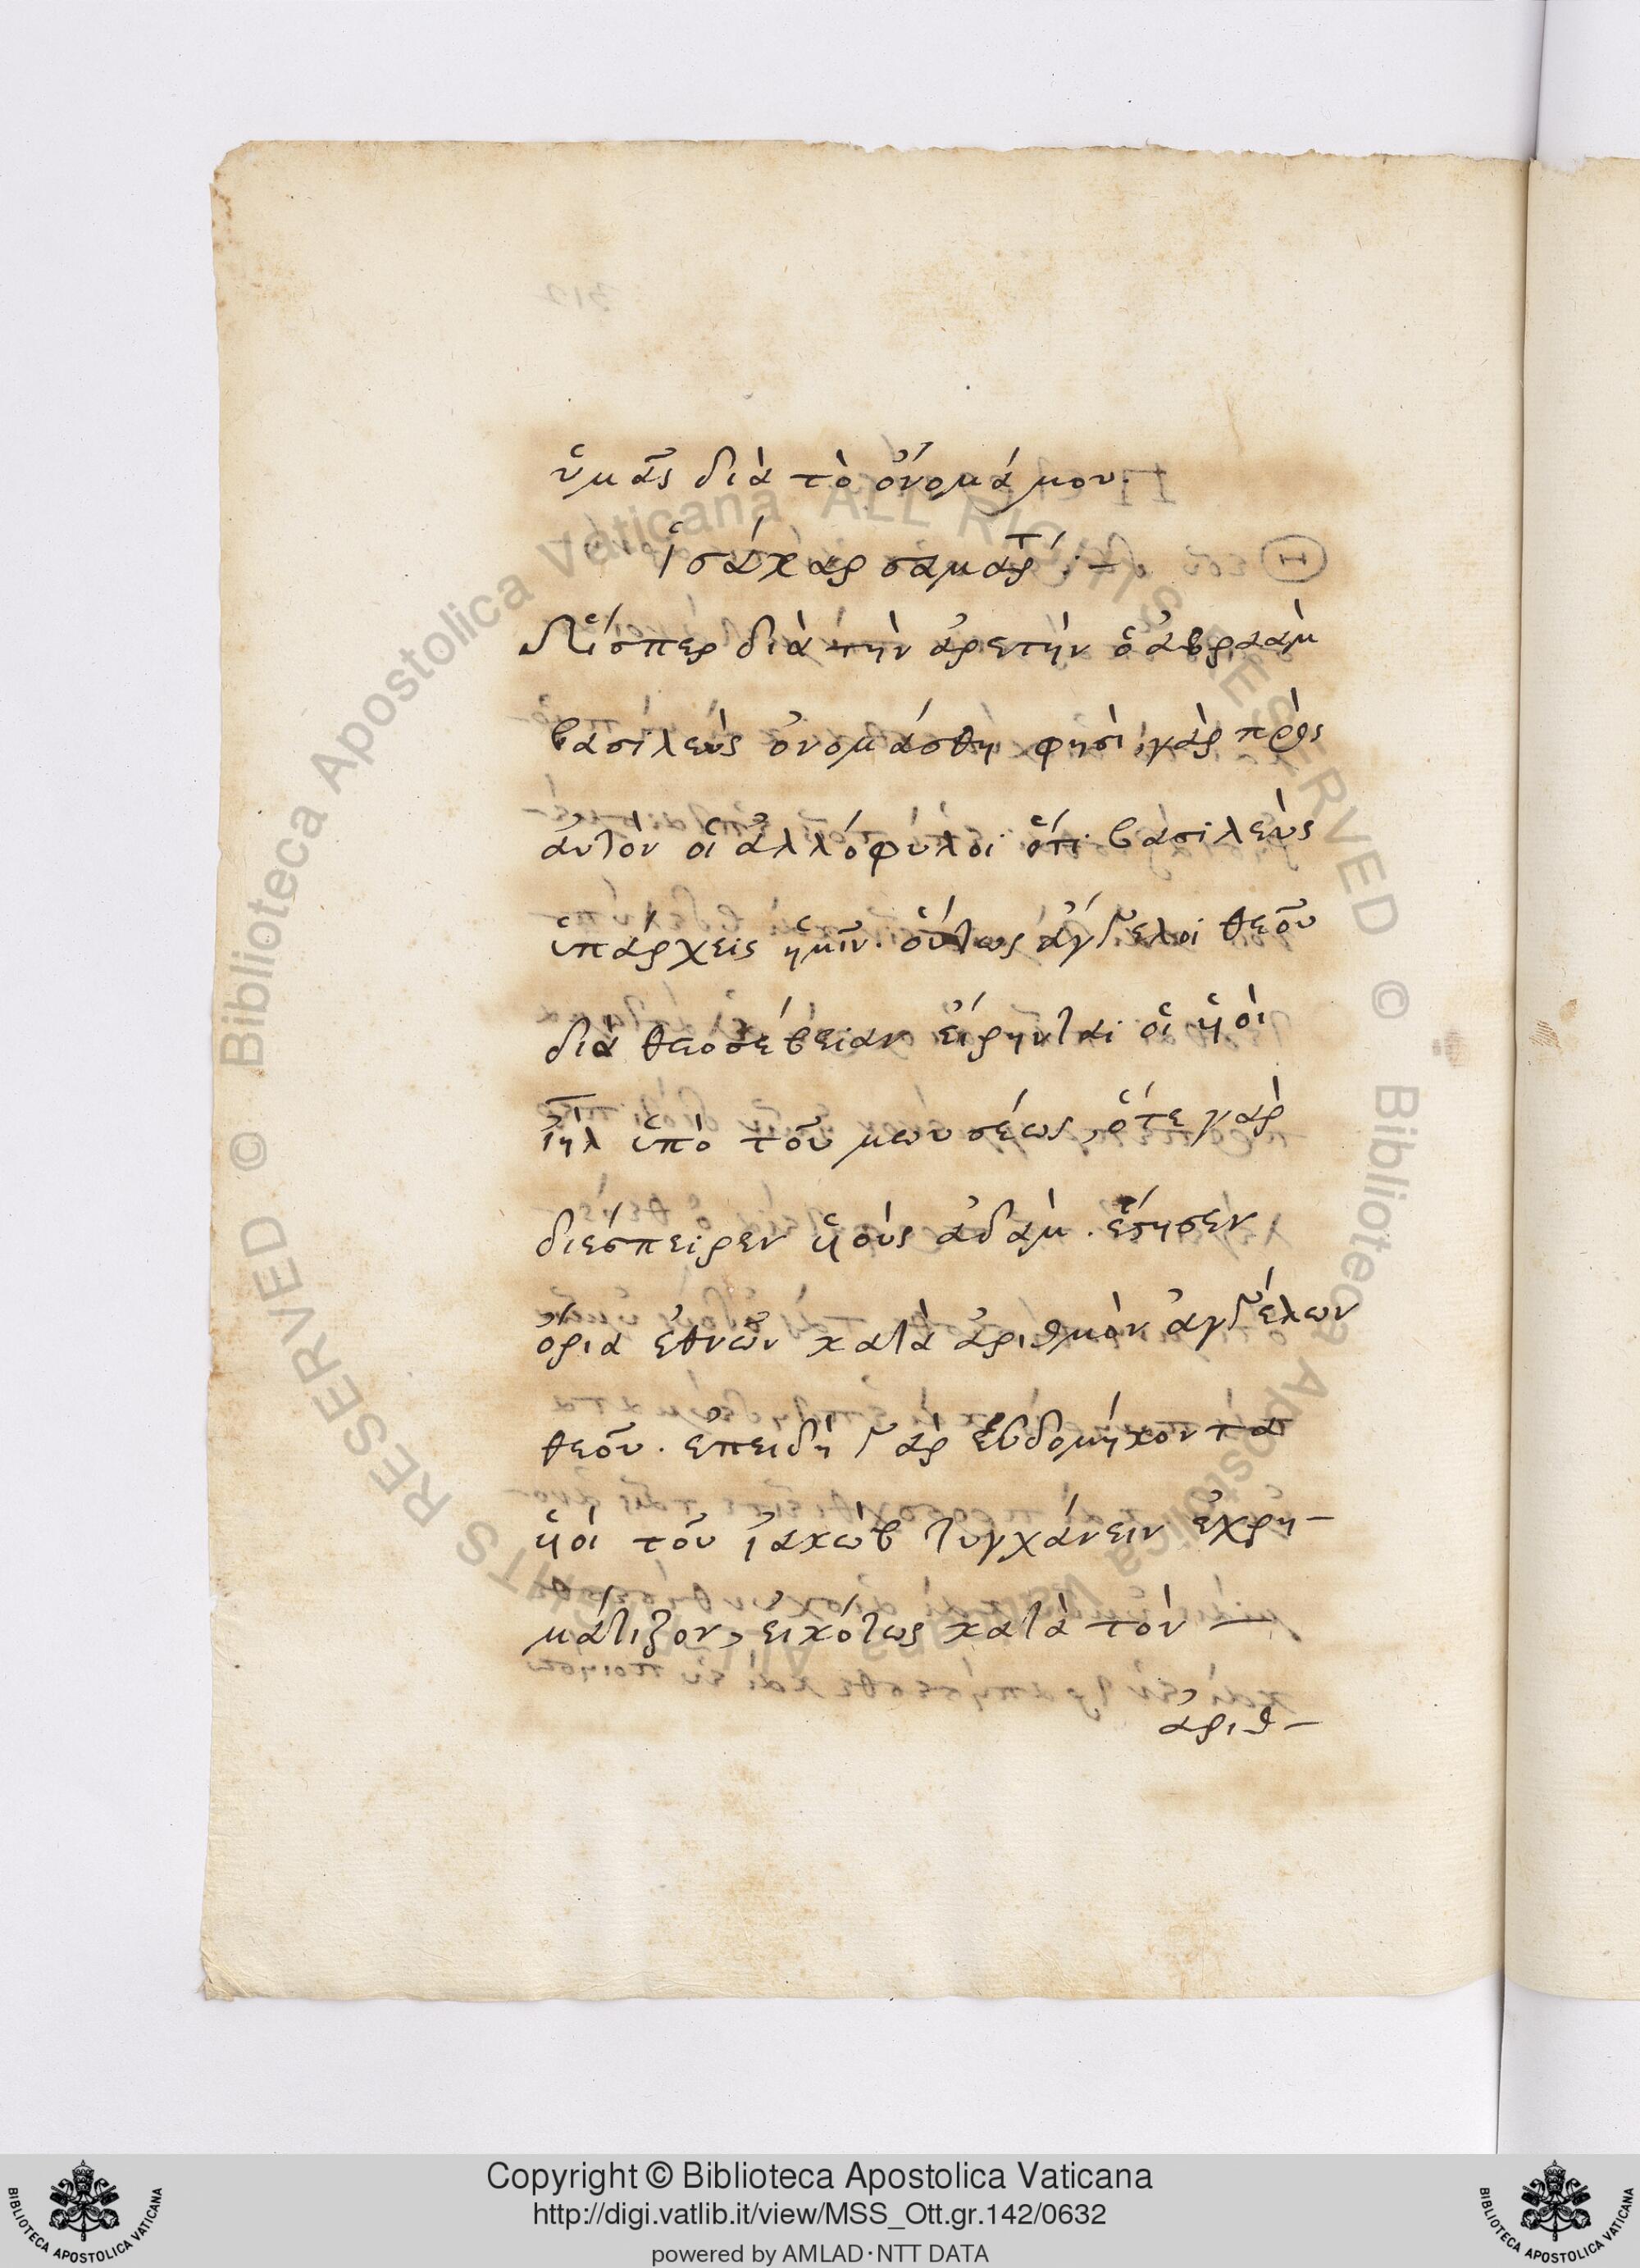 ὑμᾶς διὰ τὸ ὄνομά μου.
ἰσάχαρ σαμαρτ́ :–
Ὥσπερ διὰ τὴν ἀρετὴν ὁ ἀβραὰμ
βασιλεὺς ὀνομάσθη φησὶ γὰρ πρὸς
αὐτὸν οἱ ἀλλόφυλοι ὅτι βασιλεὺς
ὑπάρχεις ἡμῖν. οὕτως ἄγγελοι θεοῦ
διὰ θεοσέβειαν εἴρηνται οἱ υἱοὶ
ἰηλ ὑπὸ τοῦ μωυσέως, ὅτε γὰρ
διέσπειρεν υἱοὺς ἀδὰμ. ἔστησεν
ὅρια ἐθνῶν κατὰ ἀριθμὸν ἀγγέλων
θεοῦ. ἐπειδὴ γὰρ ἑβδομήκοντα
υἱοὶ τοῦ ἰακὼβ τυγχάνειν ἐχρη–
μάτιζον, εἰκότως κατὰ τὸν –
ἀριθ–
Copyright © Biblioteca Apostolica Vaticana
http://digi.vatlib.it/view/MSS_Ott.gr.142/0632
powered by AMLAD·NTT DATA
BIBLIOTECA APOSTOLICA VATICANA
BIBLIOTECA APOSTOLICA VATICANA
© Biblioteca Apostolica Vaticana ALL RIGHTS RESERVED
© Biblioteca Apostolica Vaticana ALL RIGHTS RESERVED